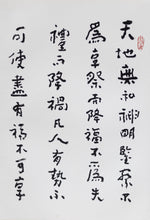 天地無私神明鑒察不
為享祭而降福不為失
禮而降禍凡人有勢不
可使盡有福不可享